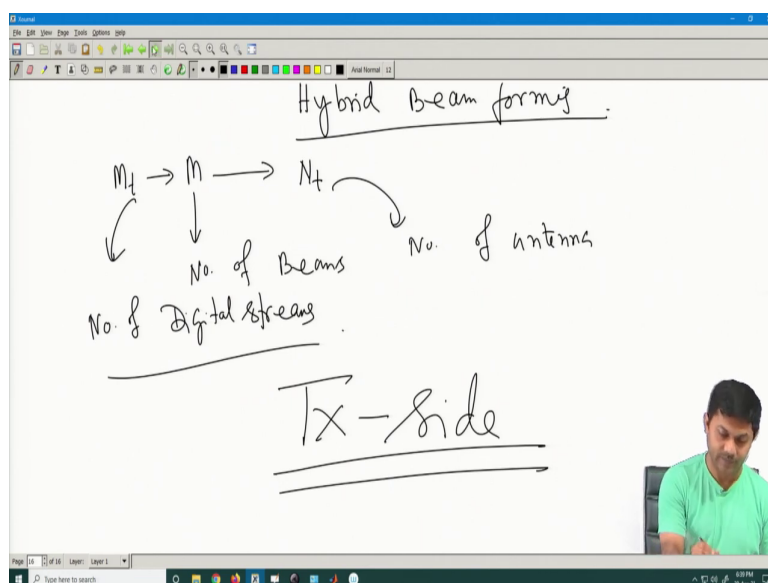 Xournal
File Edit View Page Tools Options Help
Arial Normal 12
Hybrid Beam formig
Mt → M → Nt
No. of antenna
No. of Beams
No. of Digital Streams
Tx - Side
Page 16 of 16 Layer: Layer 1
Type here to search
6:39 PM